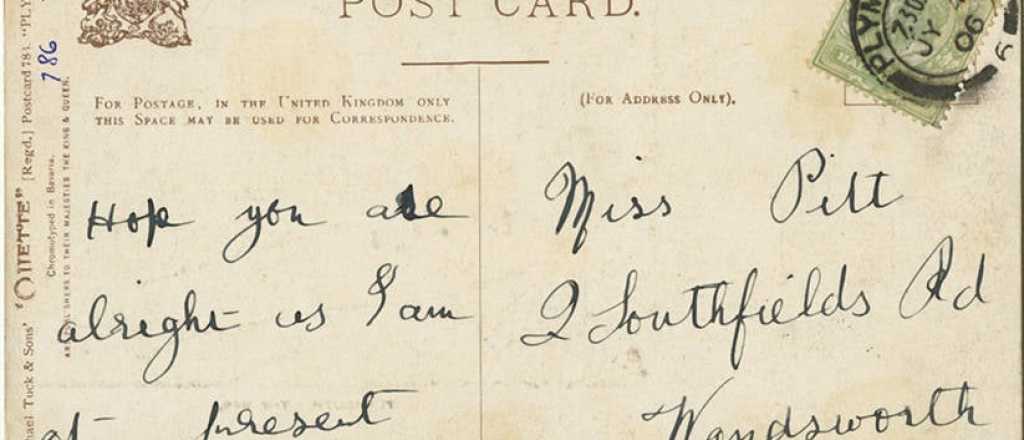 POST CARD.
FOR POSTAGE, IN THE UNITED KINGDOM ONLY
THIS SPACE MAY BE USED FOR CORRESPONDENCE.
(FOR ADDRESS ONLY).
Hope you are
alright as I am
at present
Miss Pitt
2 Southfields Rd
Wandsworth
PLYM
7.30
JY
06
786
"OILETTE" [Regd.] Postcard 783. "PLY
hael Tuck & Sons'
Chromotyped in Bavaria.
TO THEIR MAJESTIES THE KING & QUEEN.